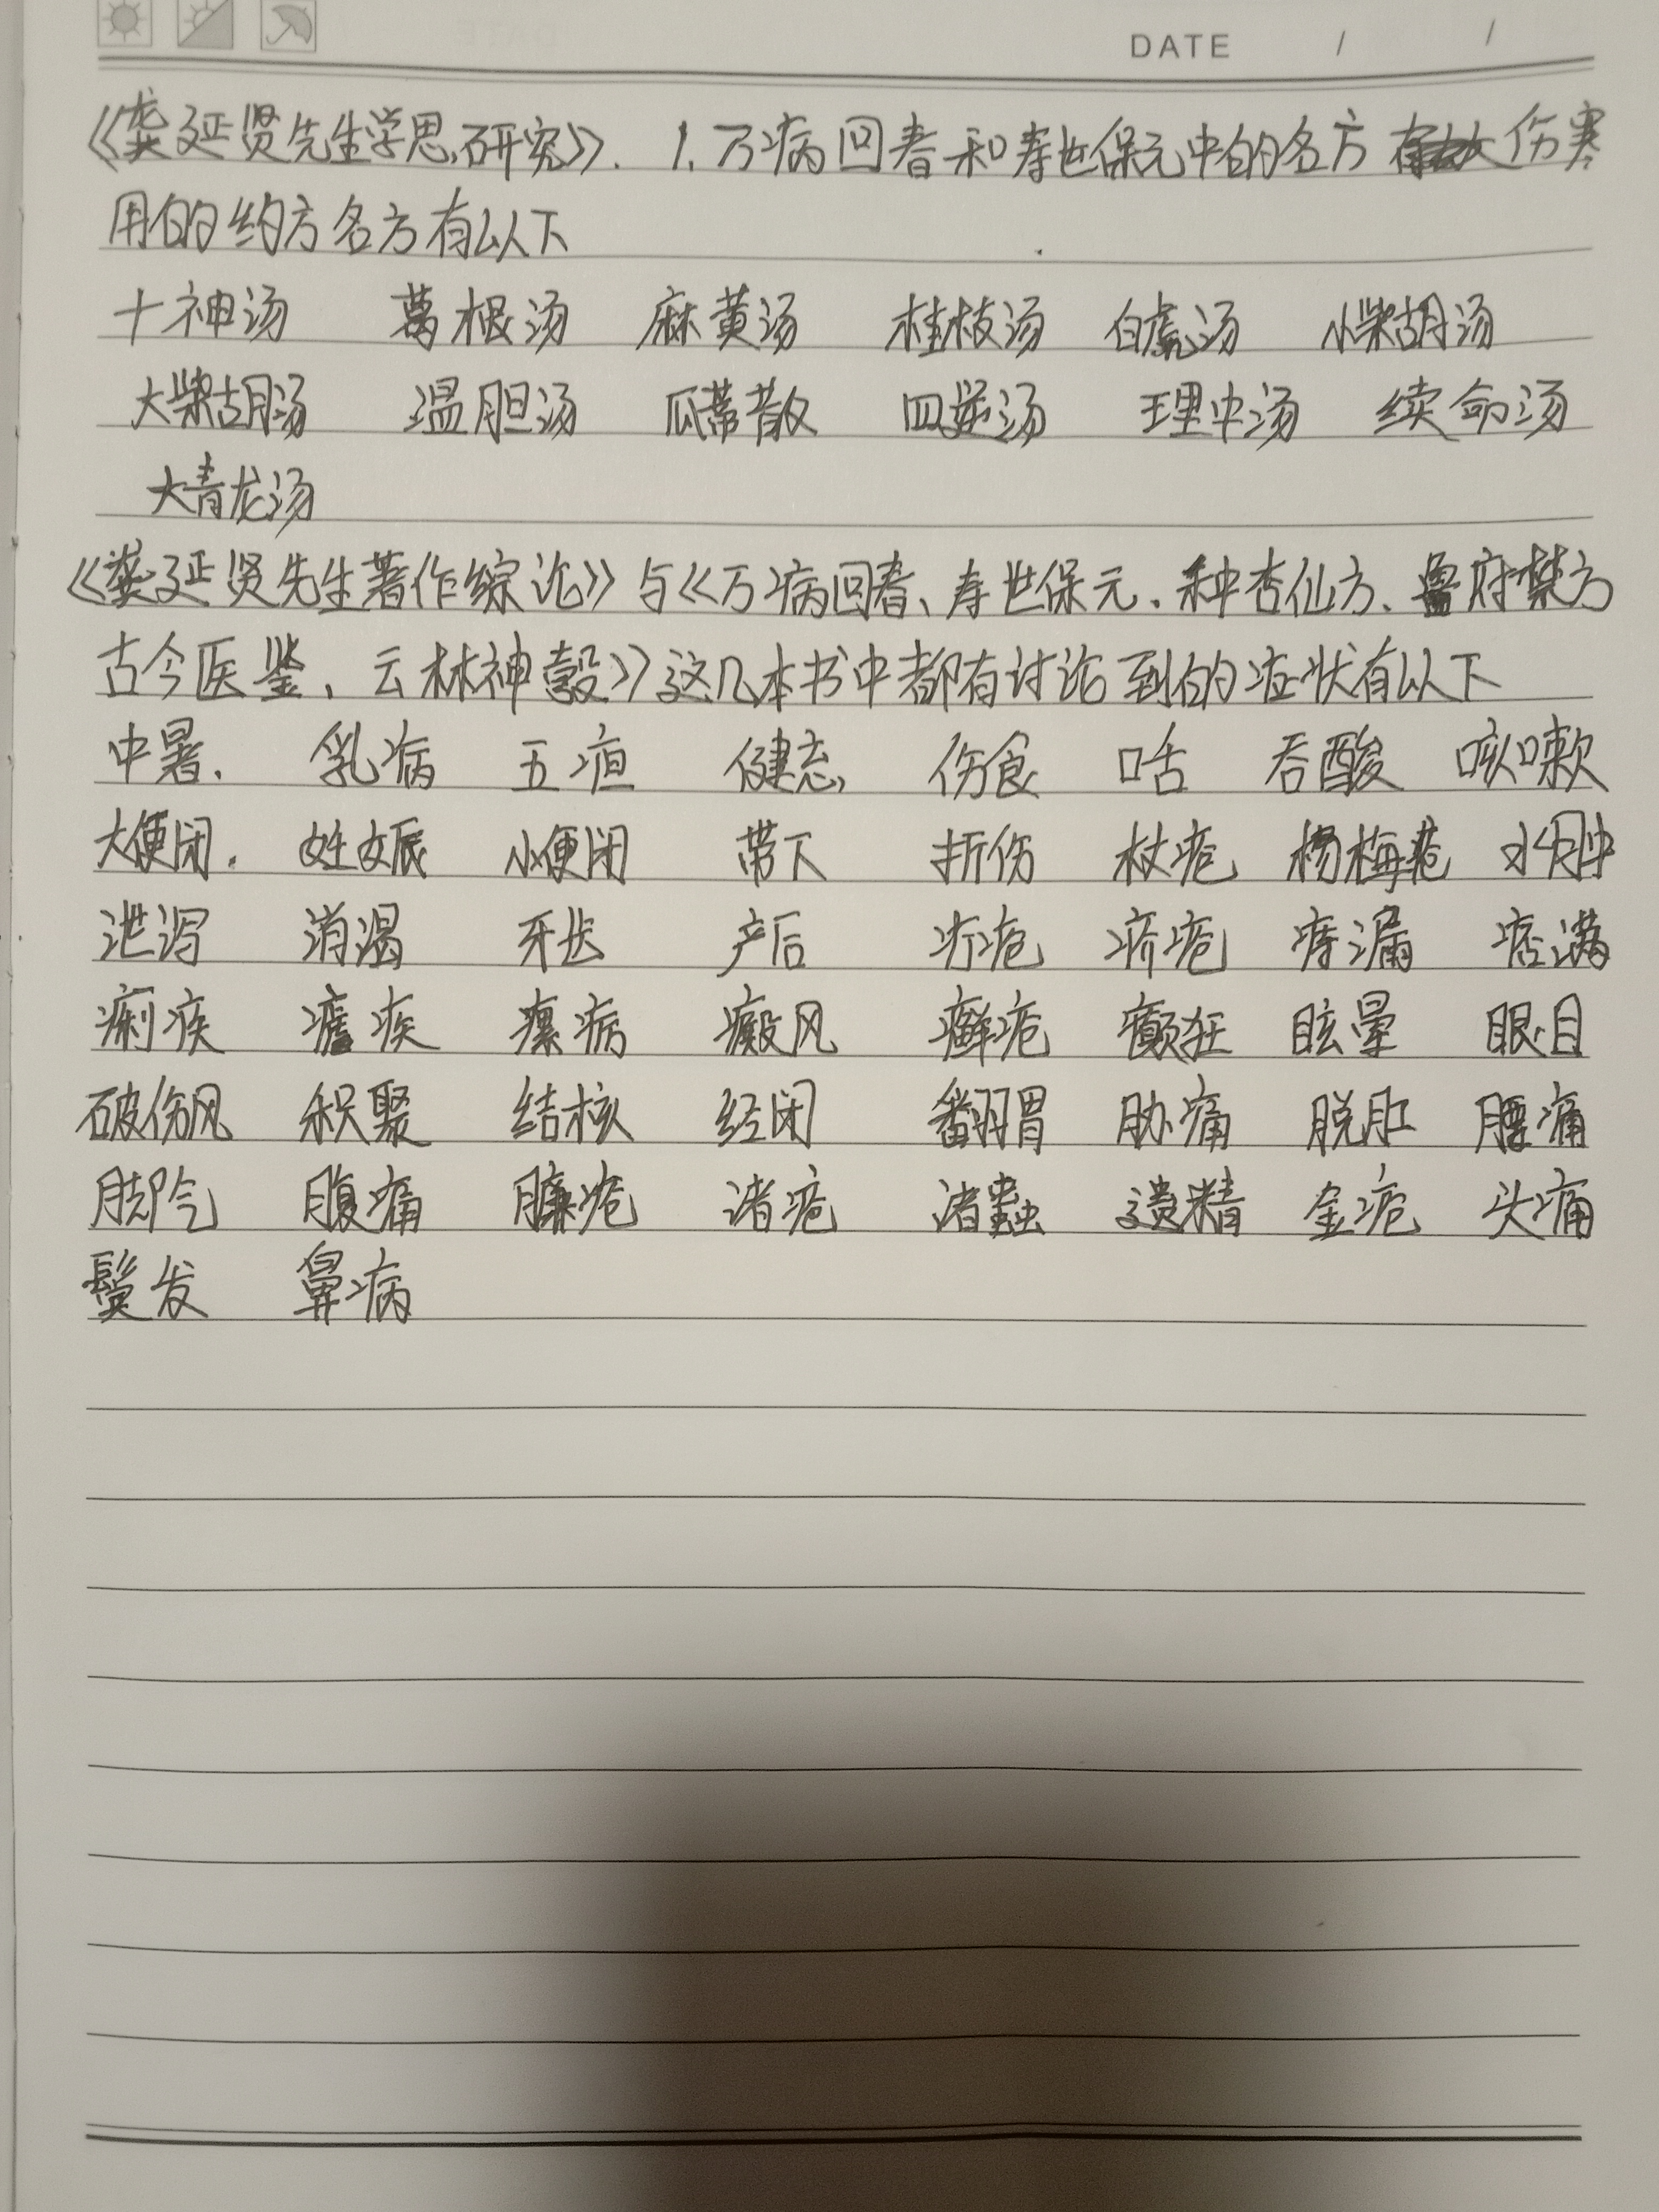 DATE / /
《龚延贤先生学思研究》. 1. 万病回春和寿世保元中的各方 伤寒
用的约方各方有以下
十神汤 葛根汤 麻黄汤 桂枝汤 白虎汤 小柴胡汤
大柴胡汤 温胆汤 瓜蒂散 四逆汤 理中汤 续命汤
大青龙汤
《龚延贤先生著作综论》与《万病回春、寿世保元、种杏仙方、鲁府禁方
古今医鉴、云林神彀》这几本书中都有讨论到的症状有以下
中暑. 乳病 五疸 健忘 伤食 口舌 吞酸 咳嗽
大便闭. 妊娠 小便闭 带下 折伤 杖疮 杨梅疮 水肿
泄泻 消渴 牙齿 产后 疔疮 疥疮 痔漏 痞满
痢疾 瘧疾 瘰病 癜风 癣疮 癫狂 眩晕 眼目
破伤风 积聚 结核 经闭 翻胃 胁痛 脱肛 腰痛
脚气 腹痛 臁疮 诸疮 诸蟲 遗精 金疮 头痛
鬓发 鼻病